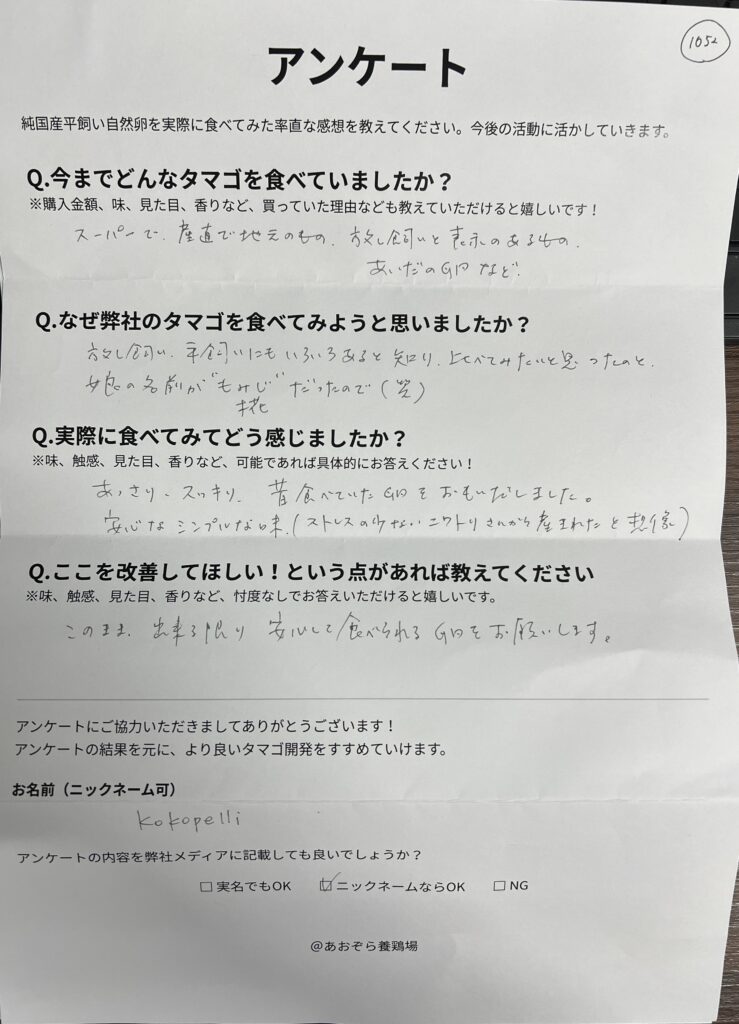 1052
アンケート
純国産平飼い自然卵を実際に食べてみた率直な感想を教えてください。今後の活動に活かしていきます。
Q.今までどんなタマゴを食べていましたか？
※購入金額、味、見た目、香りなど、買っていた理由なども教えていただけると嬉しいです！
スーパーで、産直で地元のもの、放し飼いと表示のあるもの、
あいだの卵など。
Q.なぜ弊社のタマゴを食べてみようと思いましたか？
放し飼い、平飼いにもいろいろあると知り、比べてみたいと思ったのと、
娘の名前が"もみじ"だったので(笑)
椛
Q.実際に食べてみてどう感じましたか？
※味、触感、見た目、香りなど、可能であれば具体的にお答えください！
あっさり、スッキリ、昔食べていた卵をおもいだしました。
安心なシンプルな味、(ストレスの少ないニワトリさんから産まれたと想像)
Q.ここを改善してほしい！という点があれば教えてください
※味、触感、見た目、香りなど、忖度なしでお答えいただけると嬉しいです。
このまま、出来る限り安心して食べられる卵をお願いします。
アンケートにご協力いただきましてありがとうございます！
アンケートの結果を元に、より良いタマゴ開発をすすめていけます。
お名前（ニックネーム可）
kokopelli
アンケートの内容を弊社メディアに記載しても良いでしょうか？
□実名でもOK ☑ニックネームならOK □NG
@あおぞら養鶏場